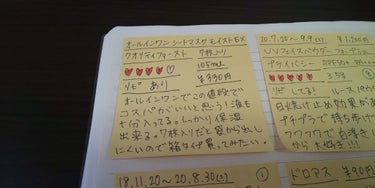 オールインワン シートマスク モイスト EX
クオリティファースト 7枚入り
105ml
¥330円
リピ あり
オールインワンでこの値段で
コスパがいいと思う！液も
七分入ってる。しっかり保湿
出来る。7枚入りだと袋から出し
にくいので箱なイプ買ってみたい。
20.7.20〜9.9(
¥1,200円
UVフェイスパウダー
プライバシー SPF50+
3.5g
リピ してる！ ルースパウ
日焼け止め効果があ
フワフワで
18.11.20〜20.8.30(土)
①
ドロアス
¥90円